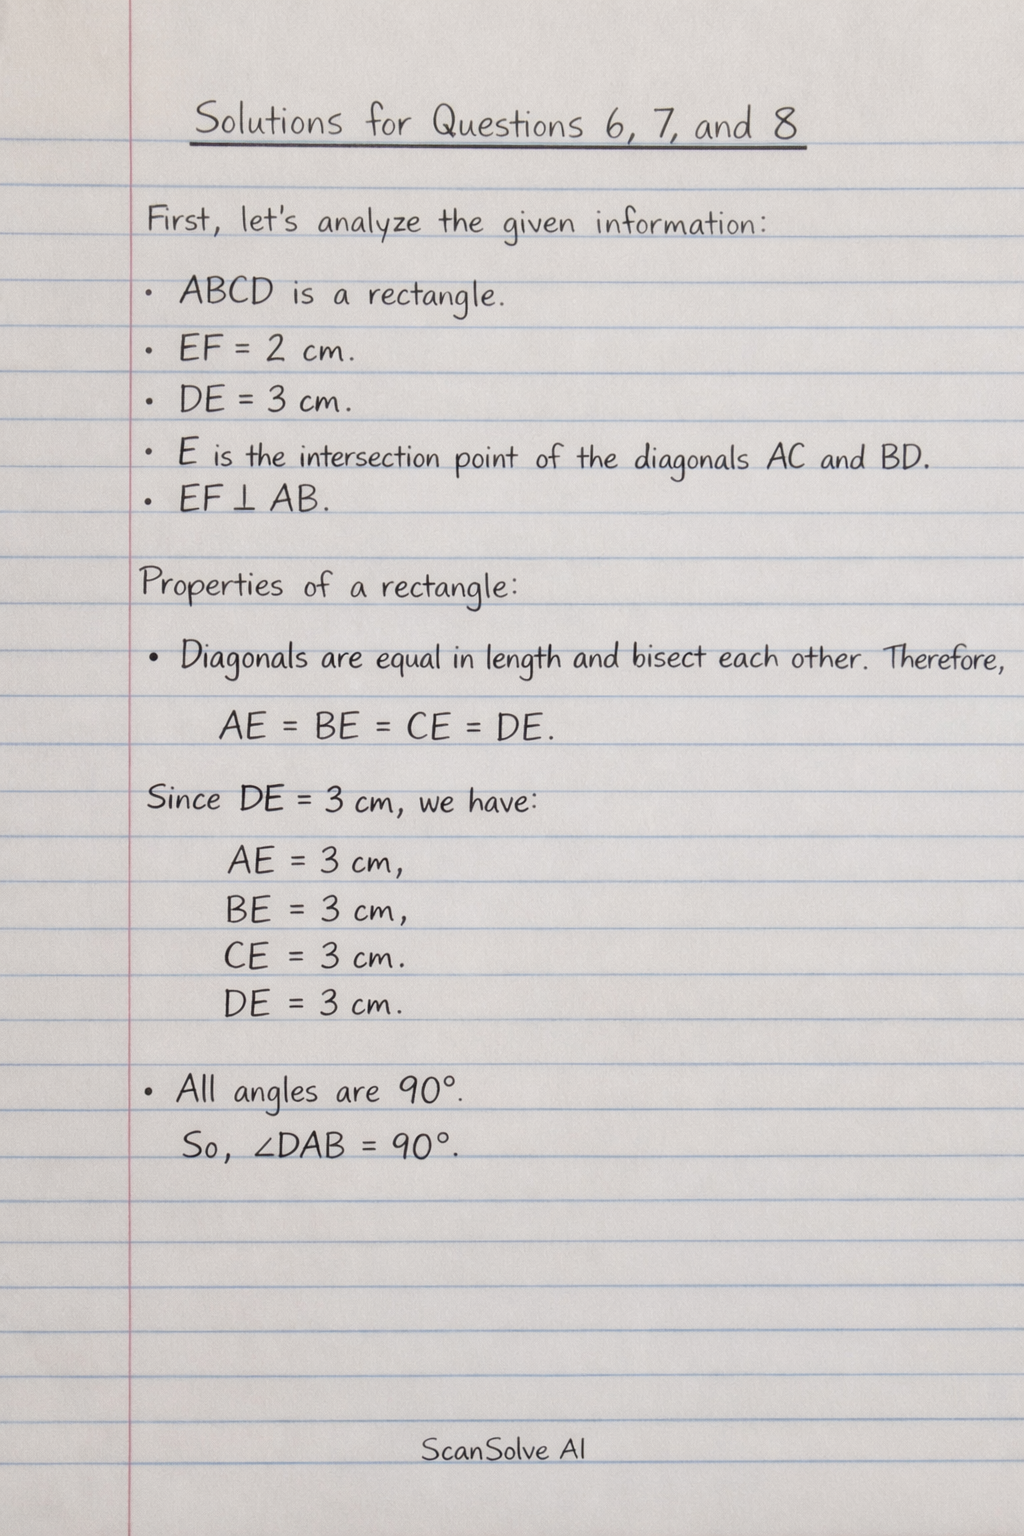 Solutions for Questions 6, 7, and 8
First, let's analyze the given information:
• ABCD is a rectangle.
• EF = 2 cm.
• DE = 3 cm.
• E is the intersection point of the diagonals AC and BD.
• EF ⊥ AB.
Properties of a rectangle:
• Diagonals are equal in length and bisect each other. Therefore,
AE = BE = CE = DE.
Since DE = 3 cm, we have:
AE = 3 cm,
BE = 3 cm,
CE = 3 cm.
DE = 3 cm.
• All angles are 90°.
So, ∠DAB = 90°.
ScanSolve AI